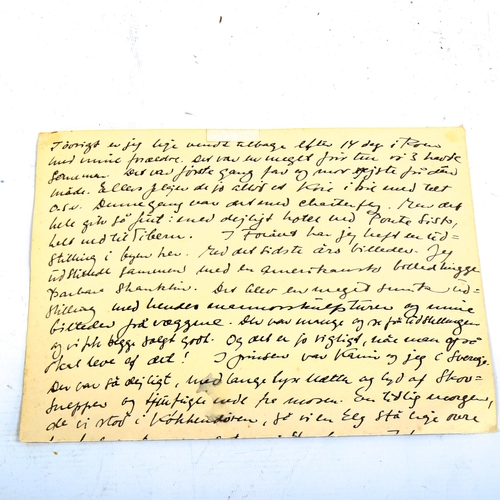 Iøvrigt er jeg lige vendt tilbage efter 14 dage i Rom
med mine forældre. Det var en meget fin tur vi 3 havde
sammen. Det var første gang far og mor rejste på den
måde. Ellers plejer de jo altid at køre i bil med telt
o.s.v. Denne gang var det med charterfly. Men det
hele gik så fint: med dejligt hotel ved Ponte Sisto,
helt ned til Tiberen. I Foråret har jeg haft en ud=
stilling i byen her. Med det sidste års billeder. Jeg
udstillede sammen med en amerikansk billedhugger
Barbara Shanklin. Det blev en meget smuk ud=
stilling med hendes marmorskulpturer og mine
billeder på væggene. Der var mange og se på udstillingen
og vi fik begge solgt godt. Og det er jo vigtigt, når man også
skal leve af det! I pinsen var Karin og jeg i Sverige.
Der var så dejligt, med lange lyse nætter og lyd af Skov=
snepper og fugle nede fra mosen. En tidlig morgen,
da vi stod i Køkkendøren, så vi en Elg stå lige ovre